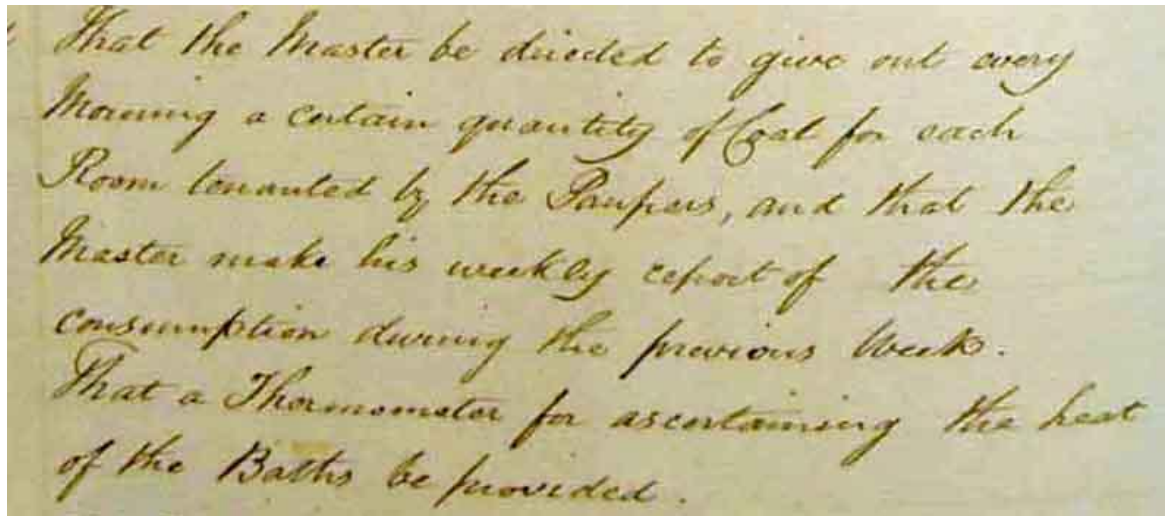 That the Master be directed to give out every
Morning a certain quantity of Coal for each
Room tenanted by the Paupers, and that the
Master make his weekly report of the
consumption during the previous Week.
That a Thermometer for ascertaining the heat
of the Baths be provided.